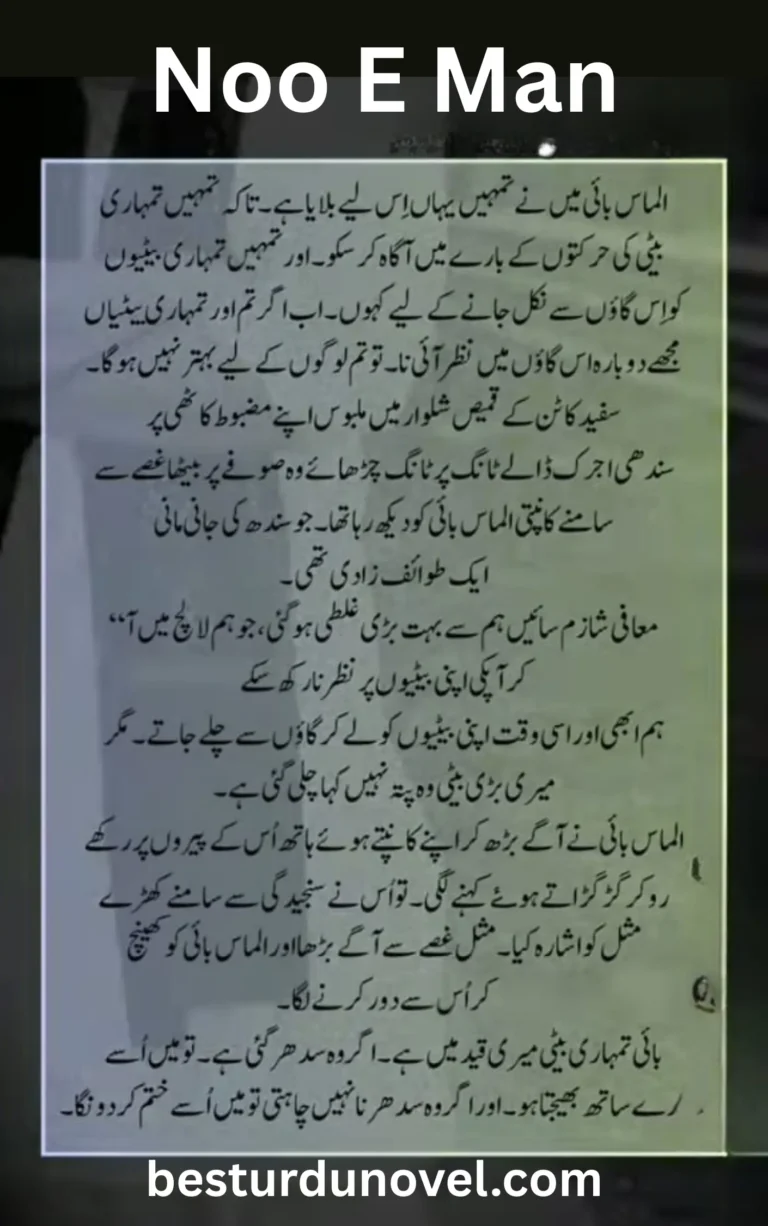 Noo E Man
الماس بائی میں نے تمہیں یہاں اِس لیے بلایا ہے۔ تاکہ تمہیں تمہاری
بیٹی کی حرکتوں کے بارے میں آگاہ کر سکو۔ اور تمہیں تمہاری بیٹیوں
کو اِس گاؤں سے نکل جانے کے لیے کہوں۔ اب اگر تم اور تمہاری بیٹیاں
مجھے دوبارہ اس گاؤں میں نظر آئی نا۔ تو تم لوگوں کے لیے بہتر نہیں ہوگا۔
سفید کاٹن کے قمیص شلوار میں ملبوس اپنے مضبوط کاٹھی پر
سندھی اجرک ڈالے ٹانگ پر ٹانگ چڑھائے وہ صوفے پر بیٹھا غصے سے
سامنے کانپتی الماس بائی کو دیکھ رہا تھا۔ جو سندھ کی جانی مانی
ایک طوائف زادی تھی۔
معافی شازم سائیں ہم سے بہت بڑی غلطی ہو گئی، جو ہم لالچ میں آ“
کر آپکی اپنی بیٹیوں پر نظر نا رکھ سکے
ہم ابھی اور اسی وقت اپنی بیٹیوں کو لے کر گاؤں سے چلے جاتے۔ مگر
میری بڑی بیٹی وہ پتہ نہیں کہا چلی گئی ہے۔
الماس بائی نے آگے بڑھ کر اپنے کانپتے ہوئے ہاتھ اُس کے پیروں پر رکھے
رو کر گڑگڑاتے ہوئے کہنے لگی۔ تو اُس نے سنجیدگی سے سامنے کھڑے
مثل کو اشارہ کیا۔ مثل غصے سے آگے بڑھا اور الماس بائی کو کھینچ
کر اُس سے دور کرنے لگا۔
بائی تمہاری بیٹی میری قید میں ہے۔ اگر وہ سدھر گئی ہے۔ تو میں اُسے
رے ساتھ بھیجتا ہو۔ اور اگر وہ سدھرنا نہیں چاہتی تو میں اُسے ختم کر دونگا۔
besturdunovel.com